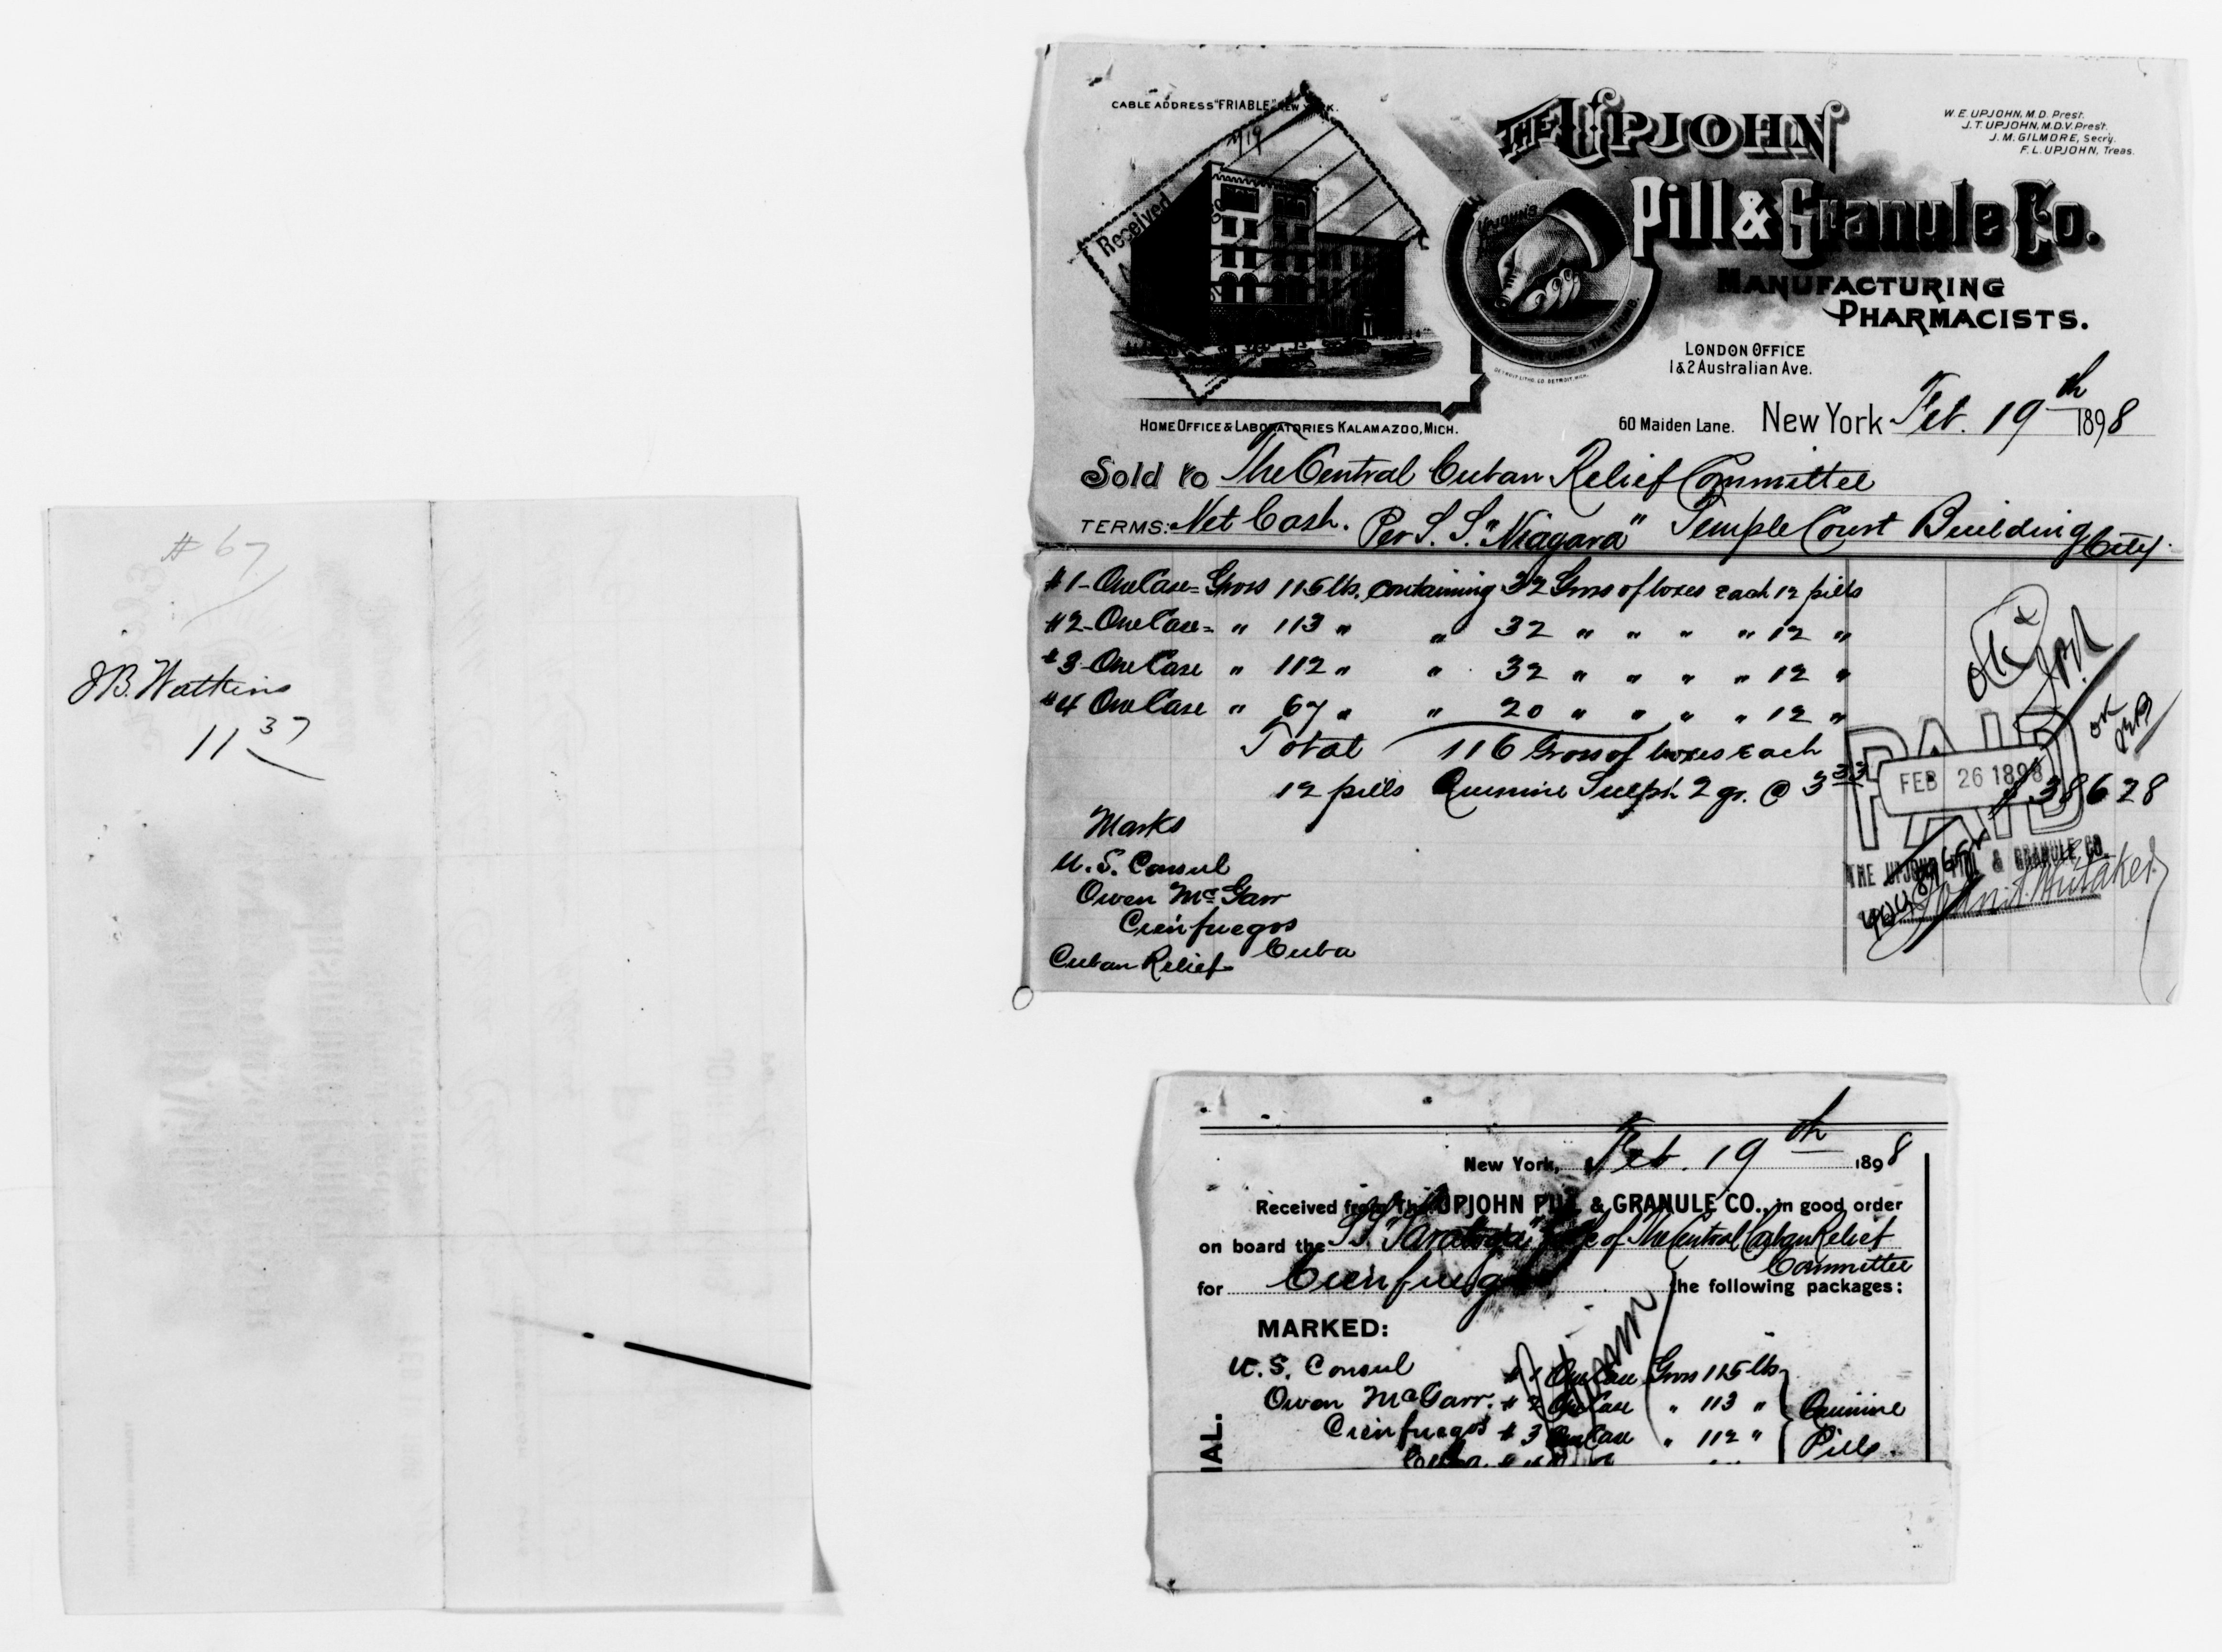 # 67
J B. Watkins
11 37
CABLE ADDRESS "FRIABLE" NEW YORK.
THE UPJOHN
Pill & Granule Co.
MANUFACTURING
PHARMACISTS.
W. E. UPJOHN, M.D. Prest.
J. T. UPJOHN, M.D. V. Prest.
J. M. GILMORE, Secry.
F. L. UPJOHN, Treas.
Received
UPJOHN'S
UNDER THE THUMB.
DETROIT LITHO. CO. DETROIT, MICH.
LONDON OFFICE
1 & 2 Australian Ave.
HOME OFFICE & LABORATORIES KALAMAZOO, MICH.
60 Maiden Lane. New York Feb. 19th 1898
Sold to The Central Cuban Relief Committee
TERMS: Net Cash. Per S. S. "Niagara" Temple Court Building City.
#1- One Case = Gross 115 lbs. containing 32 Gross of boxes each 12 pills
#2- One Case = " 113 " " 32 " " " " 12 "
#3 One Case " 112 " " 32 " " " " 12 "
#4 One Case " 67 " " 20 " " " " 12 "
Total 116 Gross of boxes each
12 pills Quinine Sulph 2 gr. @ 3 33 $ 386 28
OK
OK
PAID
FEB 26 1898
THE UPJOHN PILL & GRANULE CO.
Marks
U. S. Consul
Owen McGarr
Cienfuegos
Cuba
Cuban Relief
New York, Feb. 19th 1898
Received from The UPJOHN PILL & GRANULE CO., in good order
on board the S. S. "Saratoga" of The Central Cuban Relief
Committee
for Cienfuegos the following packages:
MARKED:
U. S. Consul # 1 One Case Gross 115 lbs
Owen McGarr. # 2 One Case " 113 " Quinine
Cienfuegos # 3 One Case " 112 " Pills.
Cuba
IAL.